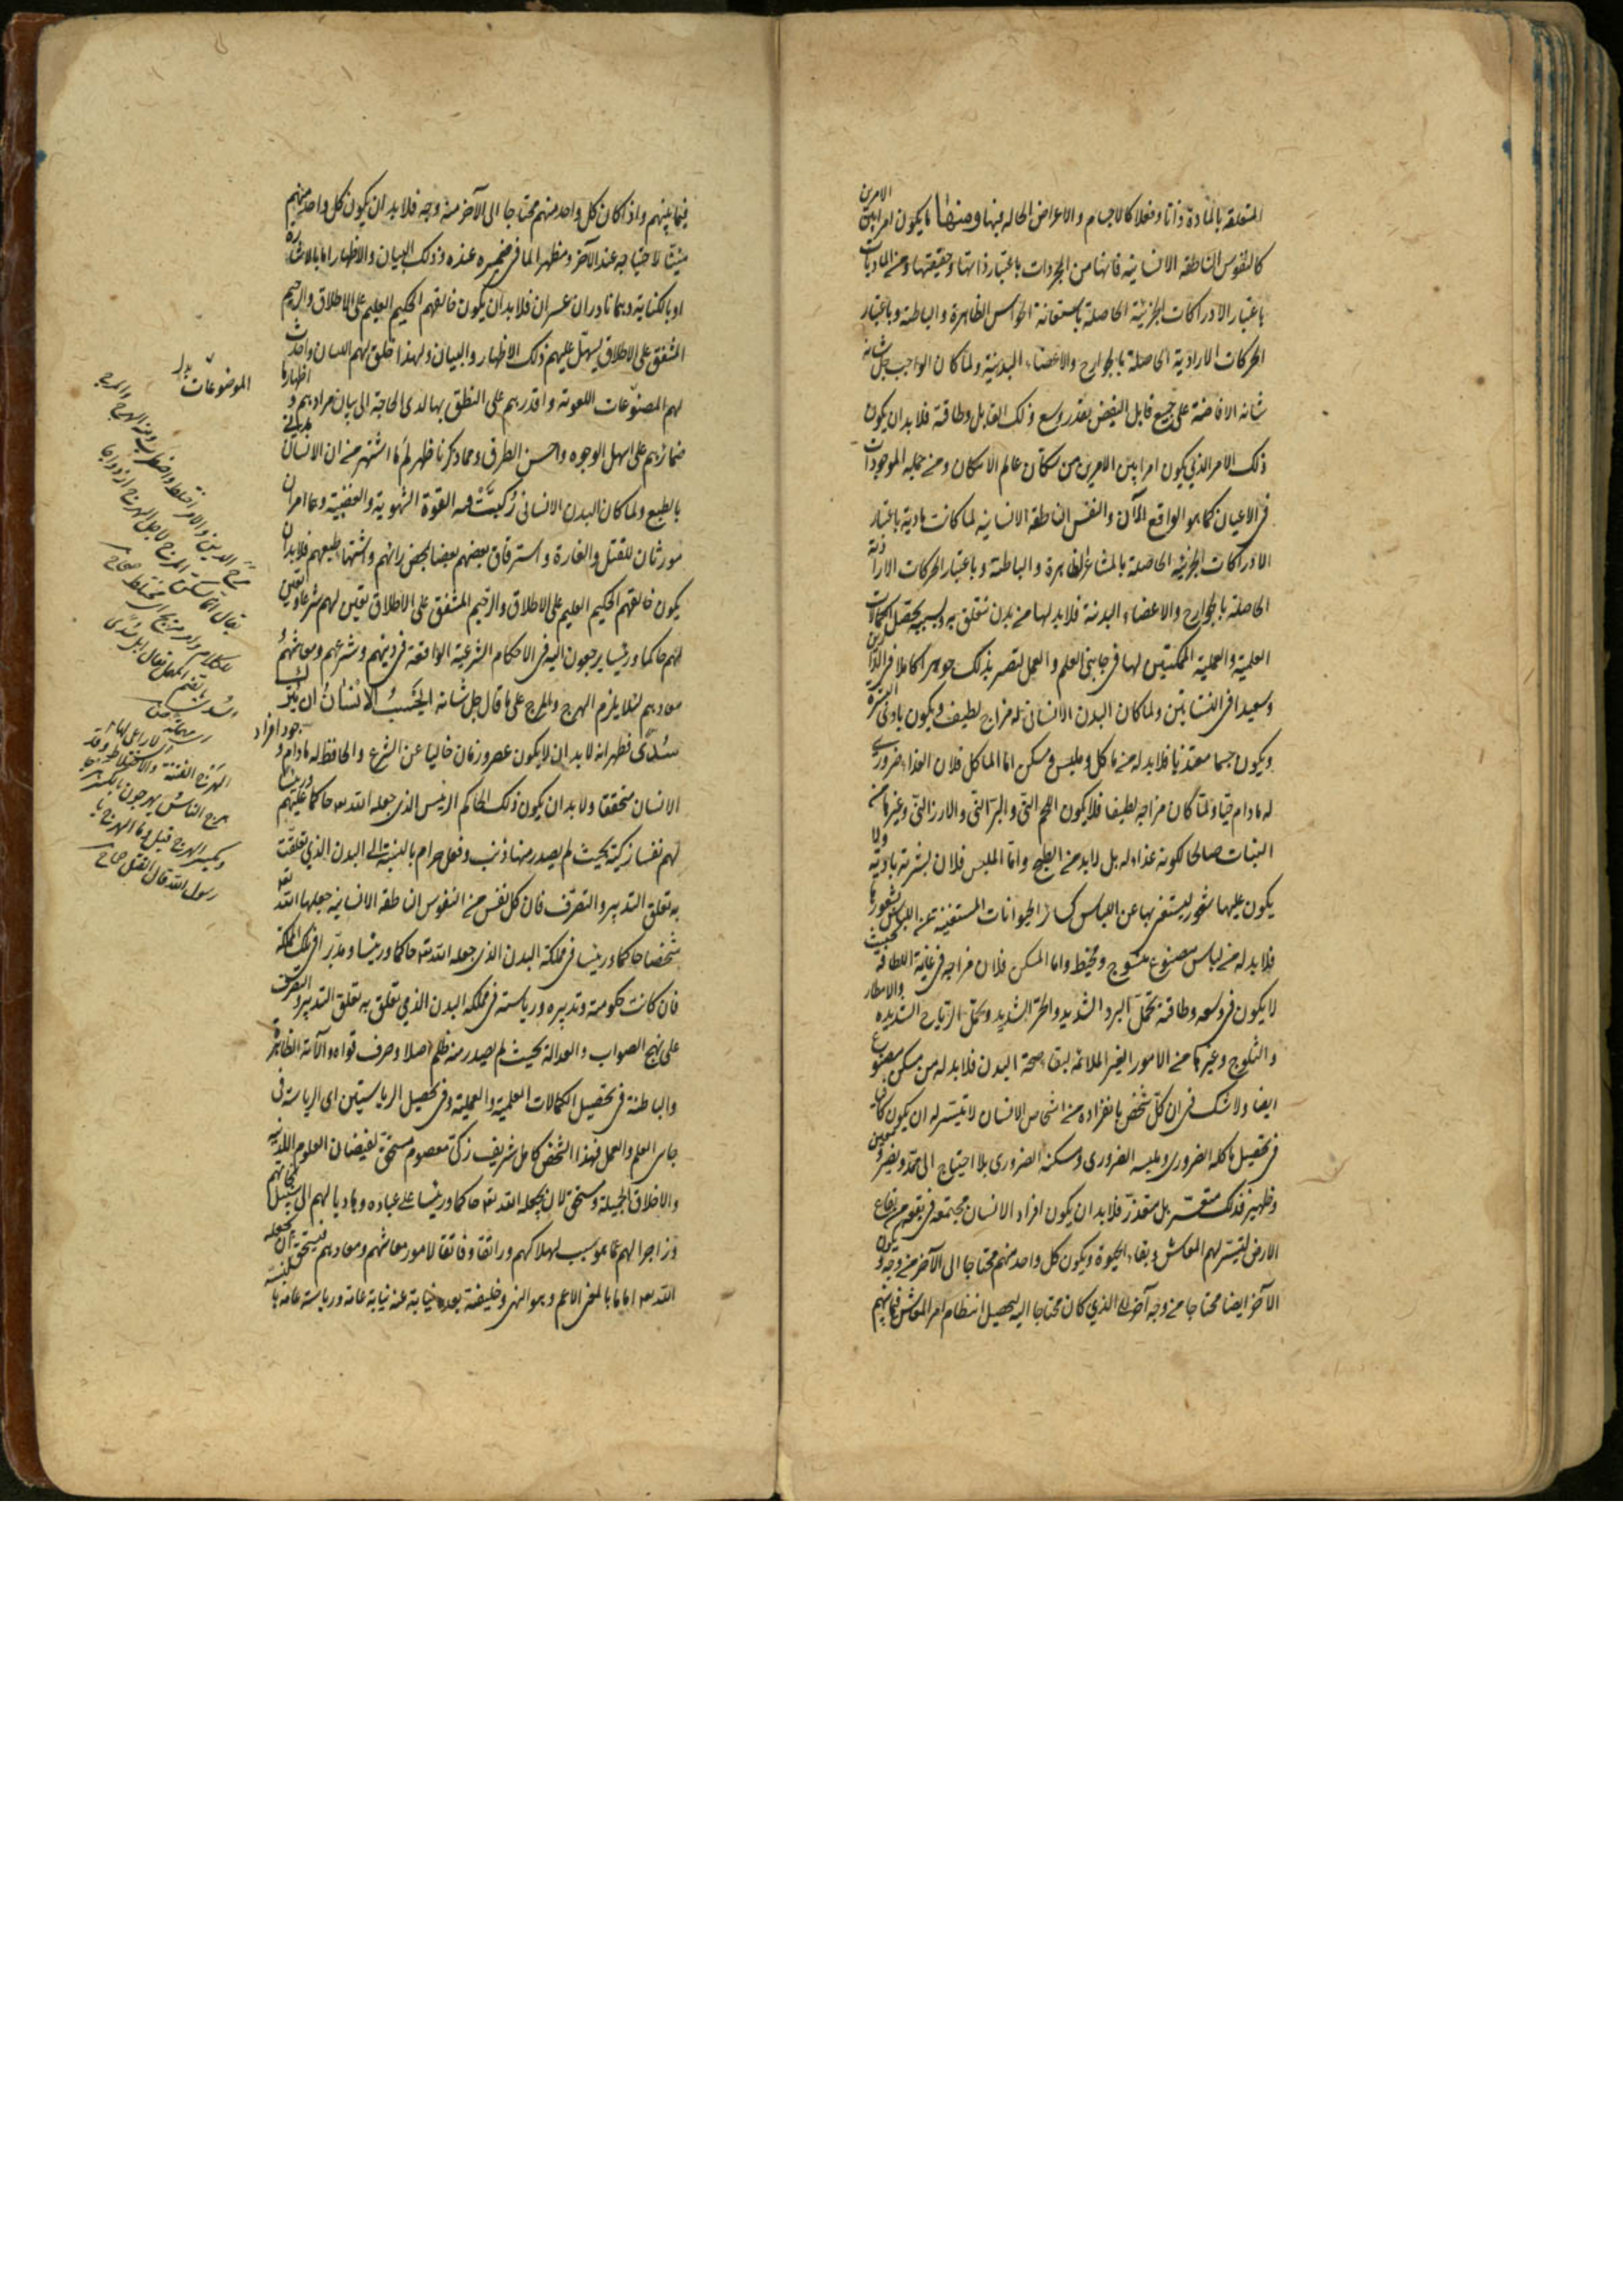 المتعلقة بالمادة ذاتا وفعلا كالاجسام والاعراض الحالة فيها ومنها ما يكون امرا بين الامرين
كالنفوس الناطقة الانسانية فانها من المجردات باعتبار ذاتها وحقيقتها ومن الماديات
باعتبار الادراكات الجزئية الحاصلة باستعانة الحواس الظاهرة والباطنة وباعتبار
الحركات الارادية الحاصلة بالجوارح والاعضاء البدنية ولما كان الواجب جل شانه
شانه الافاضة على جميع قابل الفيض بقدر وسع ذلك القابل وطاقته فلا بد ان يكون
ذلك الامر الذي يكون امرا بين الامرين من سكان عالم الامكان ومن جملة الموجودات
في الاعيان كما هو الواقع الآن والنفس الناطقة الانسانية لما كانت مادية باعتبار
الادراكات الجزئية الحاصلة بالمشاعر الظاهرة والباطنة وباعتبار الحركات الارادية
الحاصلة بالجوارح والاعضاء البدنية فلا بد لها من بدن تتعلق به وبسببه يحصل الكمالات
العلمية والعملية الممكنتين لها في جانبي العلم والعمل لتصير بذلك جوهرا كاملا في الدارين
وسعيدا في النشاتين ولما كان البدن الانساني له مزاج لطيف ويكون بادي البشرة
ويكون جسما مغتذيا فلا بد له من ماكل وملبس ومسكن اما الماكل فلان الغذاء ضروري
له مادام حيا ولما كان مزاجه لطيفا فلا يكون اللحم الني والبر الني والارز الني وغيرها من
النبات صالحا لكونه غذاء له بل لا بد من الطبخ واما الملبس فلان بشرته بادية ولا
يكون عليها شعور ليستغني بها عن اللباس كسائر الحيوانات المستغنية عن اللباس بشعورها
فلا بد له من لباس مصنوع منسوج ومخيط واما المسكن فلان مزاجه في غاية اللطافة بحيث
لا يكون في وسعه وطاقته تحمل البرد الشديد والحر الشديد وتحمل الرياح الشديدة والامطار
والثلوج وغيرها من الامور الغير الملائمة لبقاء صحة البدن فلا بد له من مسكن مصنوع
ايضا ولا شك في ان كل شخص بانفراده من اشخاص الانسان لا يتيسر له ان يكون كافيا
في تحصيل ماكله الضروري وملبسه الضروري ومسكنه الضروري بلا احتياج الى ممد ونصير ومعين
وظهير فذلك متعسر بل متعذر فلا بد ان يكون افراد الانسان مجتمعة في بقعة من بقاع
الارض ليتيسر لهم المعاش وبقاء الحيوة ويكون كل واحد منهم محتاجا الى الآخر من وجه ويكون
الآخر ايضا محتاجا من وجه آخر الى الذي كان محتاجا اليه ليحصل انتظام امر المعاش فيما بينهم
فيما بينهم واذا كان كل واحد منهم محتاجا الى الآخر من وجه فلا بد ان يكون كل واحد منهم
مبينا لاحتياجه عند الآخر ومظهرا لما في ضميره عنده وذلك البيان والاظهار اما بالاشارة
او بالكناية وهما نادران عسران فلا بد ان يكون خالقهم الحكيم العليم على الاطلاق والرحيم
المشفق على الاطلاق يسهل عليهم ذلك الاظهار والبيان ولهذا خلق لهم اللسان واحدث
لهم المصنوعات اللغوية واقدرهم على النطق بها لدى الحاجة الى بيان مرادهم واظهار ما في
ضمائرهم على اسهل الوجوه واحسن الطرق ومما ذكرنا ظهر لم ما اشتهر من ان الانسان مدني
بالطبع ولما كان البدن الانساني ركبت فيه القوة الشهوية والغضبية وهما امران
مورثان للقتل والغارة واسترقاق بعضهم بعضا بمحض رايهم واشتهاء طبعهم فلا بد ان
يكون خالقهم الحكيم العليم على الاطلاق والرحيم المشفق على الاطلاق يعين لهم شرعا ويعين
لهم حاكما ورئيسا يرجعون اليه في الاحكام الشرعية الواقعة في دينهم وشرعهم ومعاشهم
معادهم لئلا يلزم الهرج والمرج على ما قال جل شانه ايحسب الانسان ان يترك
سدى فظهر انه لا بد ان لا يكون عصر وزمان خاليا عن الشرع والحافظ له مادام وجود افراد
الانسان متحققا ولا بد ان يكون ذلك الحاكم الرئيس الذي جعله الله تعالى حاكما عليهم ورئيسا
لهم نفسا زكية بحيث لم يصدر منها ذنب وفعل حرام بالنسبة الى البدن الذي تعلقت
به تعلق التدبير والتصرف فان كل نفس من النفوس الناطقة الانسانية جعلها الله تعالى
شخصا حاكما ورئيسا في مملكة البدن الذي جعله الله تعالى حاكما ورئيسا ومدبرا في تلك المملكة
فان كانت حكومته وتدبيره ورياسته في مملكة البدن الذي تعلق به تعلق التدبير والتصرف
على نهج الصواب والعدالة بحيث لم يصدر منه ظلم اصلا وصرف قواه وآلاته الظاهرة
والباطنة في تحصيل الكمالات العلمية والعملية وفي تحصيل الرياستين اى الرياسة في
جانبي العلم والعمل فهذا الشخص كامل شريف زكي معصوم مستحق لفيضان العلوم اللدنية
والاخلاق الجميلة ومستحق لان يجعله الله تعالى حاكما ورئيسا على عباده وهاديا لهم الى سبيل نجاتهم
وزاجرا لهم عما هو سبب لهلاكهم وراتقا وفاتقا لامور معاشهم ومعادهم فيستحق ان يجعله
الله تعالى اماما بالمعنى الاعم وهو النبي وخليفته بعده نيابة عنه نيابة عامة ورياسة عامة
الموضوعات بدل
مرج الدين والامر اختلط واضطرب ومنه الهرج والمرج
يقال انما يسكن المرج لاجل الهرج ازدواجا
السدى بالضم المهمل يقال ابل سدى
الهرج الفتنة والاختلاط وقد
هرج الناس يهرجون بالكسر هرجا
رسول الله قال القتل صحاح